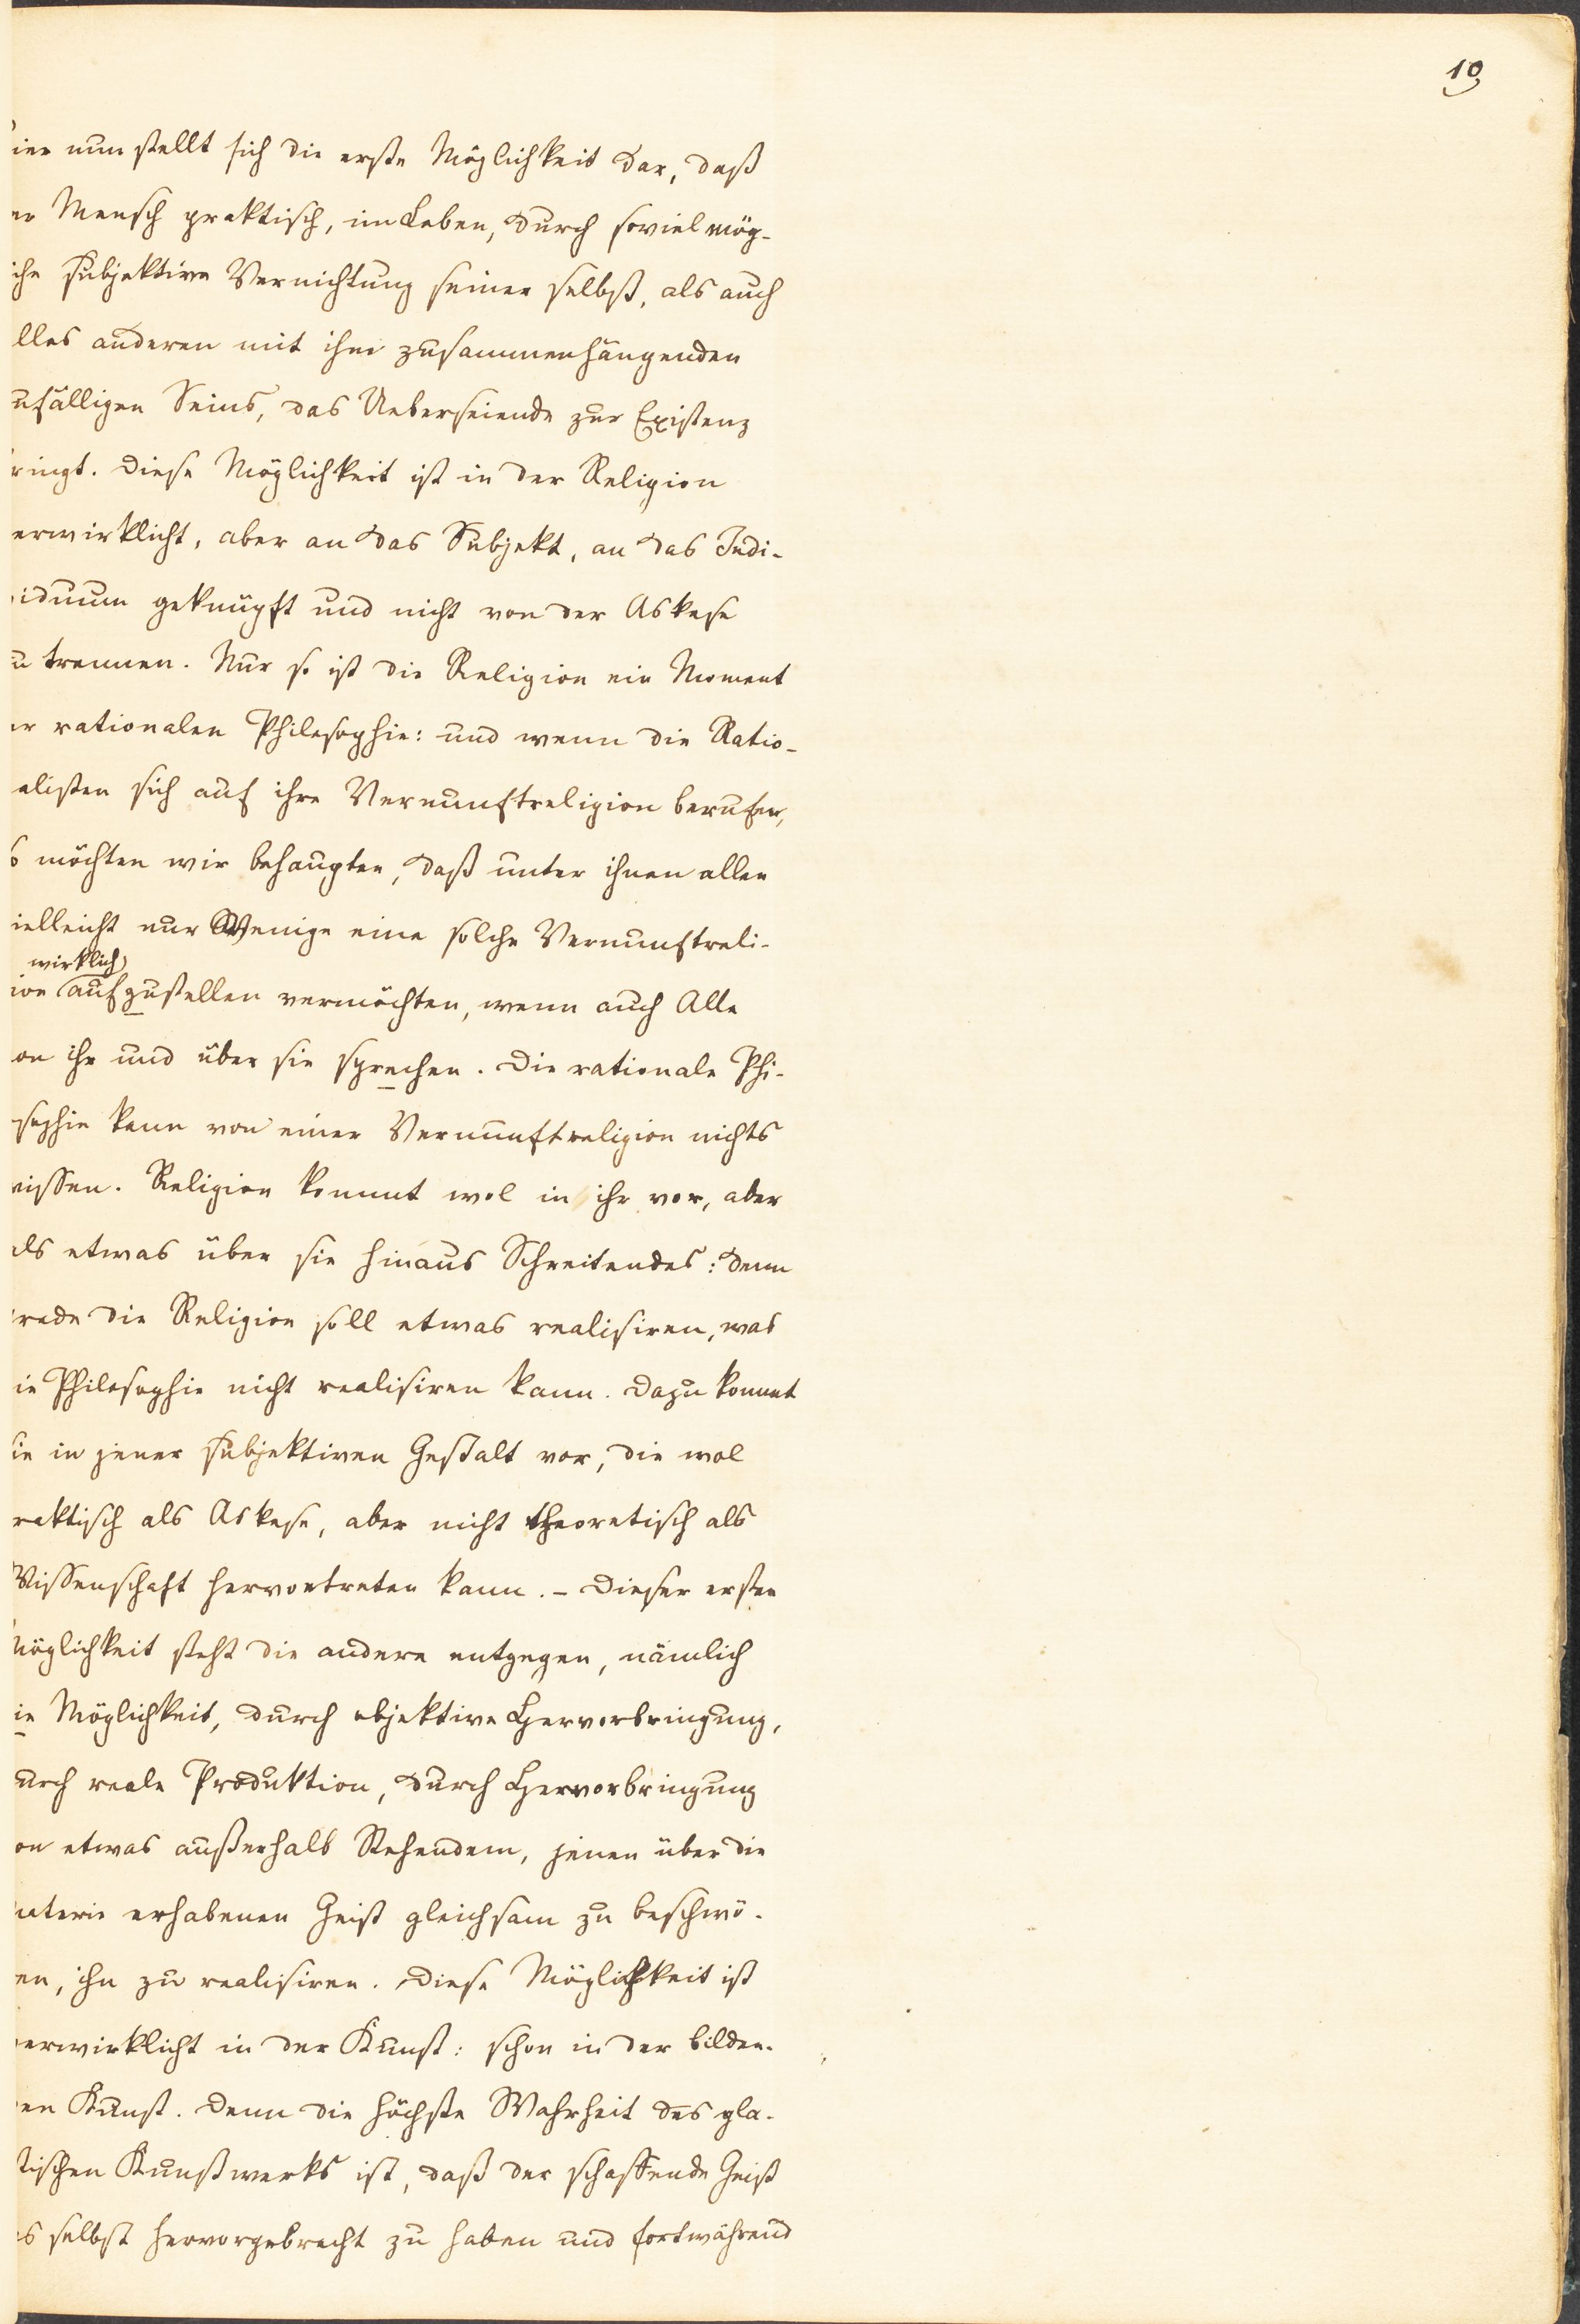 19
ier nun stellt sich die erste Möglichkeit dar, daß
er Mensch praktisch, im Leben, durch soviel mög-
iche subjektive Vernichtung seiner selbst, als auch
lles anderen mit ihm zusammenhängenden
ufälligen Seins, das Ueberseiende zur Existenz
ringt. Diese Möglichkeit ist in der Religion
erwirklicht, aber an das Subjekt, an das Indi-
iduum geknüpft und nicht von der Askese
u trennen. Nur so ist die Religion ein Moment
er rationalen Philosophie: und wenn die Ratio-
alisten sich auf ihre Vernunftreligion berufen,
o möchten wir behaupten, daß unter ihnen allen
ielleicht nur Wenige eine solche Vernunftreli-
wirklich
ion aufzustellen vermöchten, wenn auch Alle
on ihr und über sie sprechen. Die rationale Phi-
sophie kann von einer Vernunftreligion nichts
wissen. Religion kommt wol in ihr vor, aber
als etwas über sie hinaus Schreitendes: denn
rade die Religion soll etwas realisiren, was
ie Philosophie nicht realisiren kann. Dazu kommt
sie in jener subjektiven Gestalt vor, die wol
raktisch als Askese, aber nicht theoretisch als
Wissenschaft hervortreten kann. – Dieser ersten
Möglichkeit steht die andere entgegen, nämlich
ie Möglichkeit, durch objektive Hervorbringung,
urch reale Produktion, durch Hervorbringung
on etwas außerhalb Stehendem, jenen über die
aterie erhabenen Geist gleichsam zu beschwö-
en, ihn zu realisiren. Diese Möglichkeit ist
verwirklicht in der Kunst: schon in der bilden-
en Kunst. Denn die höchste Wahrheit des pla-
tischen Kunstwerks ist, daß der schaffende Geist
es selbst hervorgebracht zu haben und fortwährend